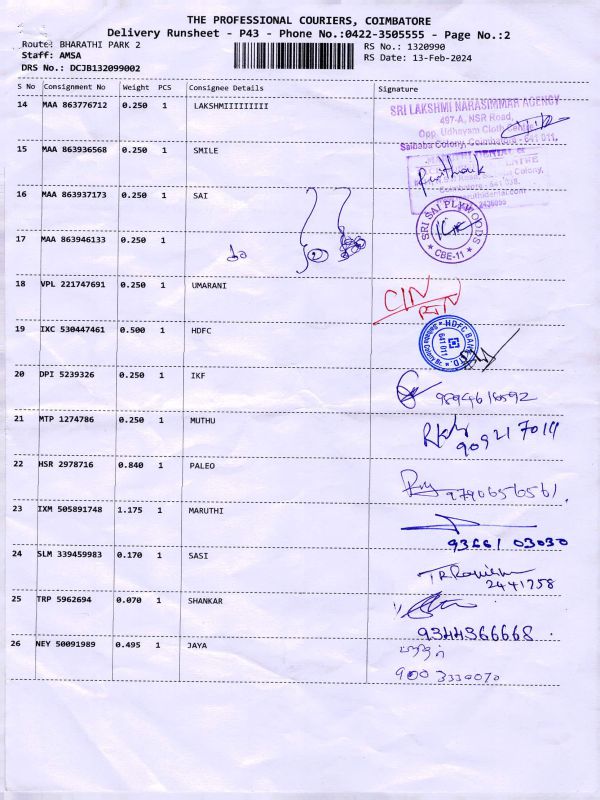 THE PROFESSIONAL COURIERS, COIMBATORE
Delivery Runsheet - P43 - Phone No.:0422-3505555 - Page No.:2
Route: BHARATHI PARK 2
RS No.: 1320990
Staff: AMSA
RS Date: 13-Feb-2024
DRS No.: DCJB132099002
S No Consignment No Weight PCS Consignee Details Signature
14 MAA 863776712 0.250 1 LAKSHMIIIIIIIII
SRI LAKSHMI NARASIMMAR AGENCY
497-A, NSR Road,
Opp. Udhayam Cloth Centre
Saibaba Colony, Coimbatore - 641 011.
15 MAA 863936568 0.250 1 SMILE
Colony,
Coimbatore - 641 038.
16 MAA 863937173 0.250 1 SAI
SRI SAI PLYWOODS
* CBE-11 *
17 MAA 863946133 0.250 1
18 VPL 221747691 0.250 1 UMARANI
CIN
RTN
19 IXC 530447461 0.500 1 HDFC
HDFC BANK LTD.
641 011
Saibaba Colony Br.
20 DPI 5239326 0.250 1 IKF
9894616592
21 MTP 1274786 0.250 1 MUTHU
909217014
22 HSR 2978716 0.840 1 PALEO
9790656561.
23 IXM 505891748 1.175 1 MARUTHI
93661 03030
24 SLM 339459983 0.170 1 SASI
2441758
25 TRP 5962694 0.070 1 SHANKAR
9344366668.
26 NEY 50091989 0.495 1 JAYA
900 3330070